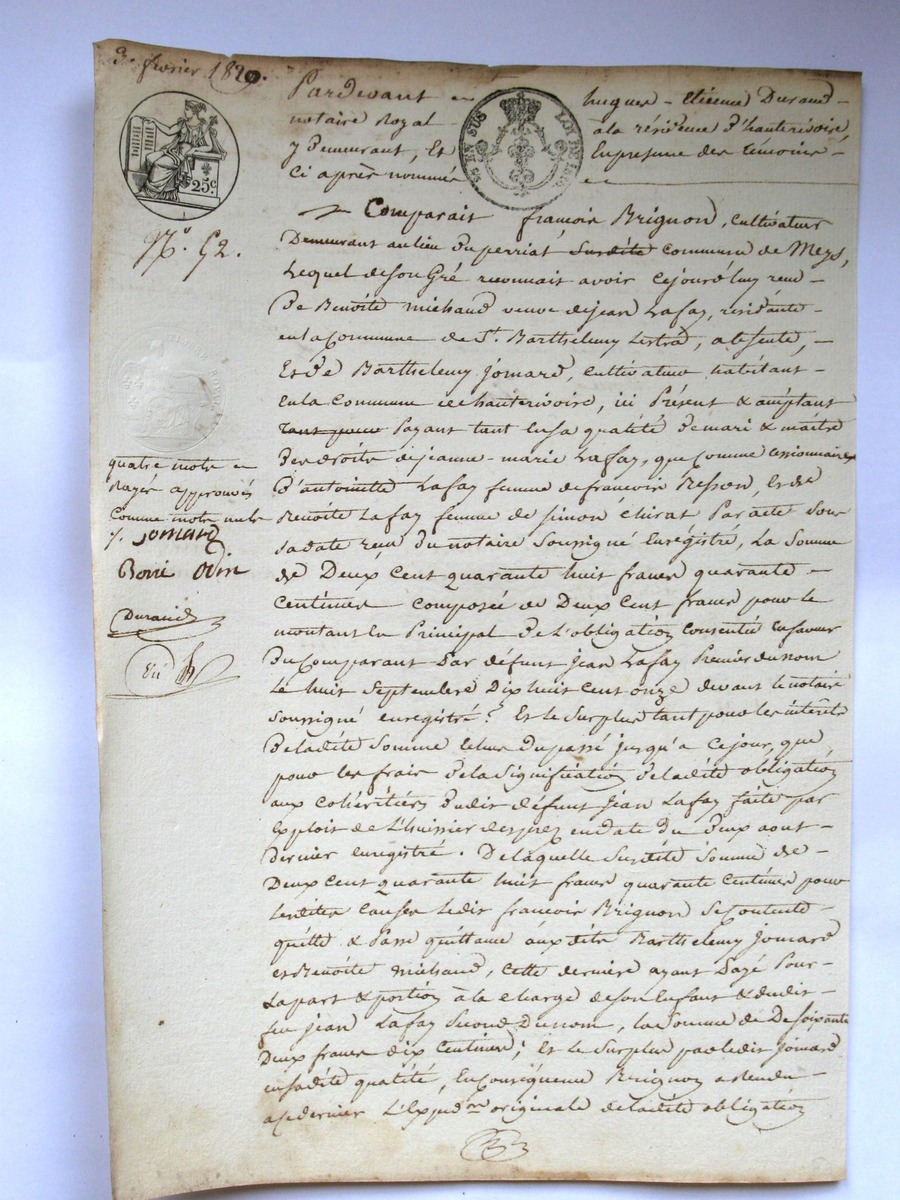 3. février 1820.
Pardevant hugues-etienne Durand
notaire Royal à la résidence d'hauterivoire,
y Demeurant, Et En presence des témoins
Ci après nommés
25 c.
EN SUS LOI DE
Comparait françois Brignon, cultivateur
Demeurant au lieu du perriat susdite commune de Meys,
Lequel de son Gré reconnait avoir cejourd'huy reçu
De Benoite michaud veuve de jean Lafay, résidante
en la Commune de St. Barthelemy Lestra, absente,
Et de Barthelemy Jomard, cultivateur habitant
en la commune de hauterivoire, ici Présent & acceptant
Payant tant en sa qualité de mari & maitre
Des droits de jeanne-marie Lafay, que comme cessionnaire
D'antoinette Lafay femme de francois Resson, et de
Benoite Lafay femme de Simon Chirat Par acte sous
sa date recu du notaire soussigné Enregistré, La somme
de Deux cent quarante huit francs quarante
centimes composée de Deux cent francs pour le
montant en Principal de L'obligation consentie en faveur
du comparant Par défunt jean Lafay Premier du nom
Le huit septembre Dix huit cent onze devant le notaire
soussigné enregistré. Et le surplus tant pour les intérêts
De ladite somme echus du passé jusqu'a ce jour, que
pour les frais de la signification de ladite obligation
aux cohéritiers dudit défunt jean Lafay faite par
Exploit de L'huissier en date du deux aout
Dernier enregistré. De laquelle susdite somme de
Deux cent quarante huit francs quarante centimes pour
Lesdites causes Ledit francois Brignon se contente
quitte & Passe quittance auxdits Barthelemy Jomard
et Benoite michaud, cette derniere ayant Payé Pour
La part & portion à la charge de son Enfant & dudit
feu jean Lafay Second du nom, la somme de Soixante
Deux francs dix centimes; Et le surplus par ledit jomard
en sadite qualité, En consequence Brignon a rendu
a ce dernier L'Expon originale de ladite obligation
N.° 52.
quatre mots
Rayés approuvés
Comme mots nuls
Jomard
Borie Odin
Durand